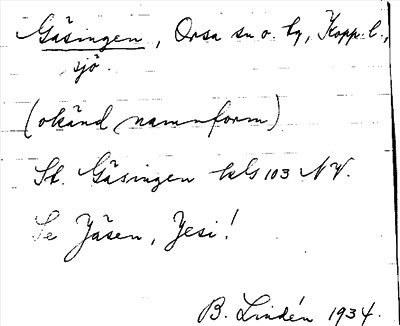 Gäsingen, Orsa sn o. tg, Kopp. l.,
sjö.
(okänd namnform)
St. Gäsingen kbl 103 NV.
Se Jäsen, Jesi!
B. Lindén 1934.